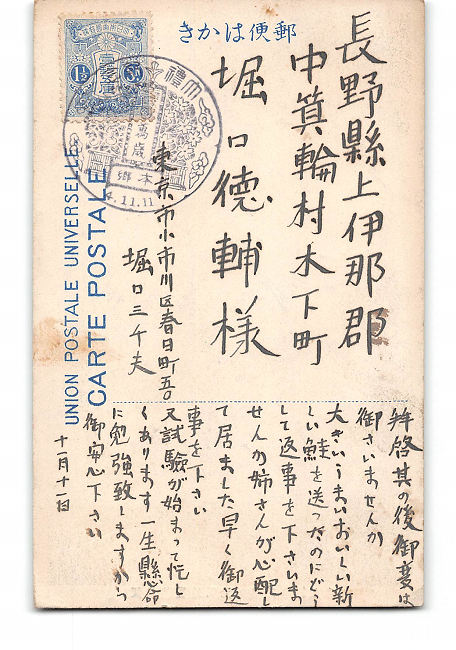 郵便はかき
UNION POSTALE UNIVERSELLE
CARTE POSTALE
1½
錢
大禮
萬歳
本郷
4.11.11
長野縣上伊那郡
中箕輪村木下町
堀口徳輔様
東京市小石川区春日町五〇
堀口三千夫
拝啓其の後御変は
御さいませんか
大きいうまいおいしい新
しい鮭を送ったのにどう
して返事を下さいま
せんか姉さんが心配し
て居ました早く御返
事を下さい
又試驗が始まって忙し
くあります一生懸命
に勉強致しますから
御安心下さい
十一月十一日